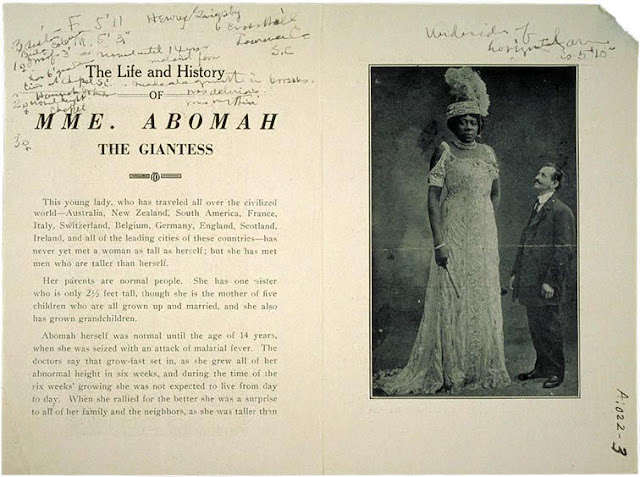 F 5'11
Henry Grigsby
Cross Hill
Laurens Co
S.C
The Life and History
OF
MME. ABOMAH
THE GIANTESS
This young lady, who has traveled all over the civilized
world—Australia, New Zealand, South America, France,
Italy, Switzerland, Belgium, Germany, England, Scotland,
Ireland, and all of the leading cities of these countries—has
never yet met a woman as tall as herself; but she has met
men who are taller than herself.
Her parents are normal people. She has one sister
who is only 2½ feet tall, though she is the mother of five
children who are all grown up and married, and she also
has grown grandchildren.
Abomah herself was normal until the age of 14 years,
when she was seized with an attack of malarial fever. The
doctors say that grow-fast set in, as she grew all of her
abnormal height in six weeks, and during the time of the
six weeks' growing she was not expected to live from day
to day. When she rallied for the better she was a surprise
to all of her family and the neighbors, as she was taller than
Underside of
horizontal arm
is 5'10"
A1022-3